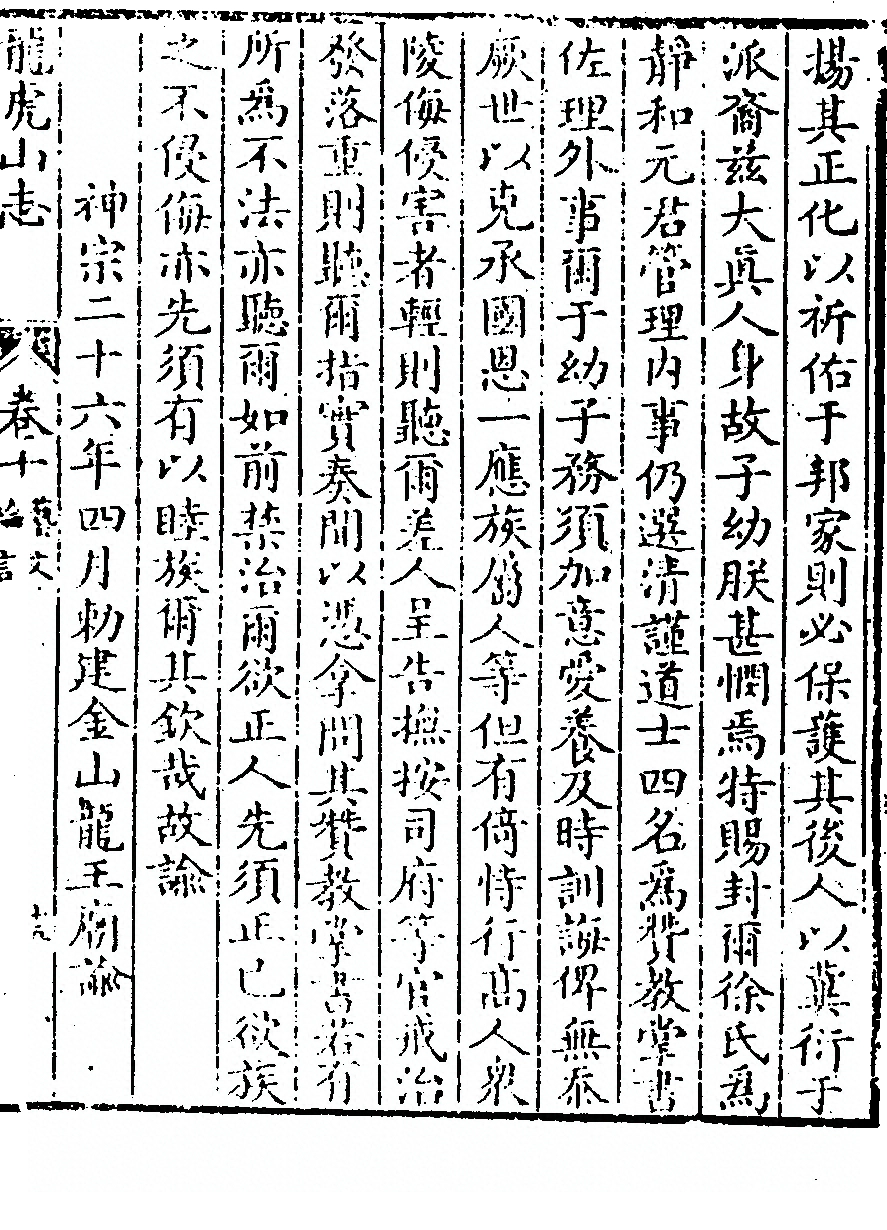 揚其正化以祈佑于邦家則必保護其後人以冀衍于
派裔茲大眞人身故子幼朕甚憫焉特賜封爾徐氏爲
靜和元君管理內事仍選清謹道士四名爲贊教掌書
佐理外事爾于幼子務須加意愛養及時訓誨俾無忝
厥世以克承國恩一應族屬人等但有倚恃行高人衆
陵侮侵害者輕則聽爾差人呈告撫按司府等官戒治
發落重則聽爾指實奏聞以憑拿問其贊教掌書若有
所爲不法亦聽爾如前禁治爾欲正人先須正己欲族
之不侵侮亦先須有以睦族爾其欽哉故諭
神宗二十六年四月勅建金山龍王廟諭
龍虎山志
卷十
藝文